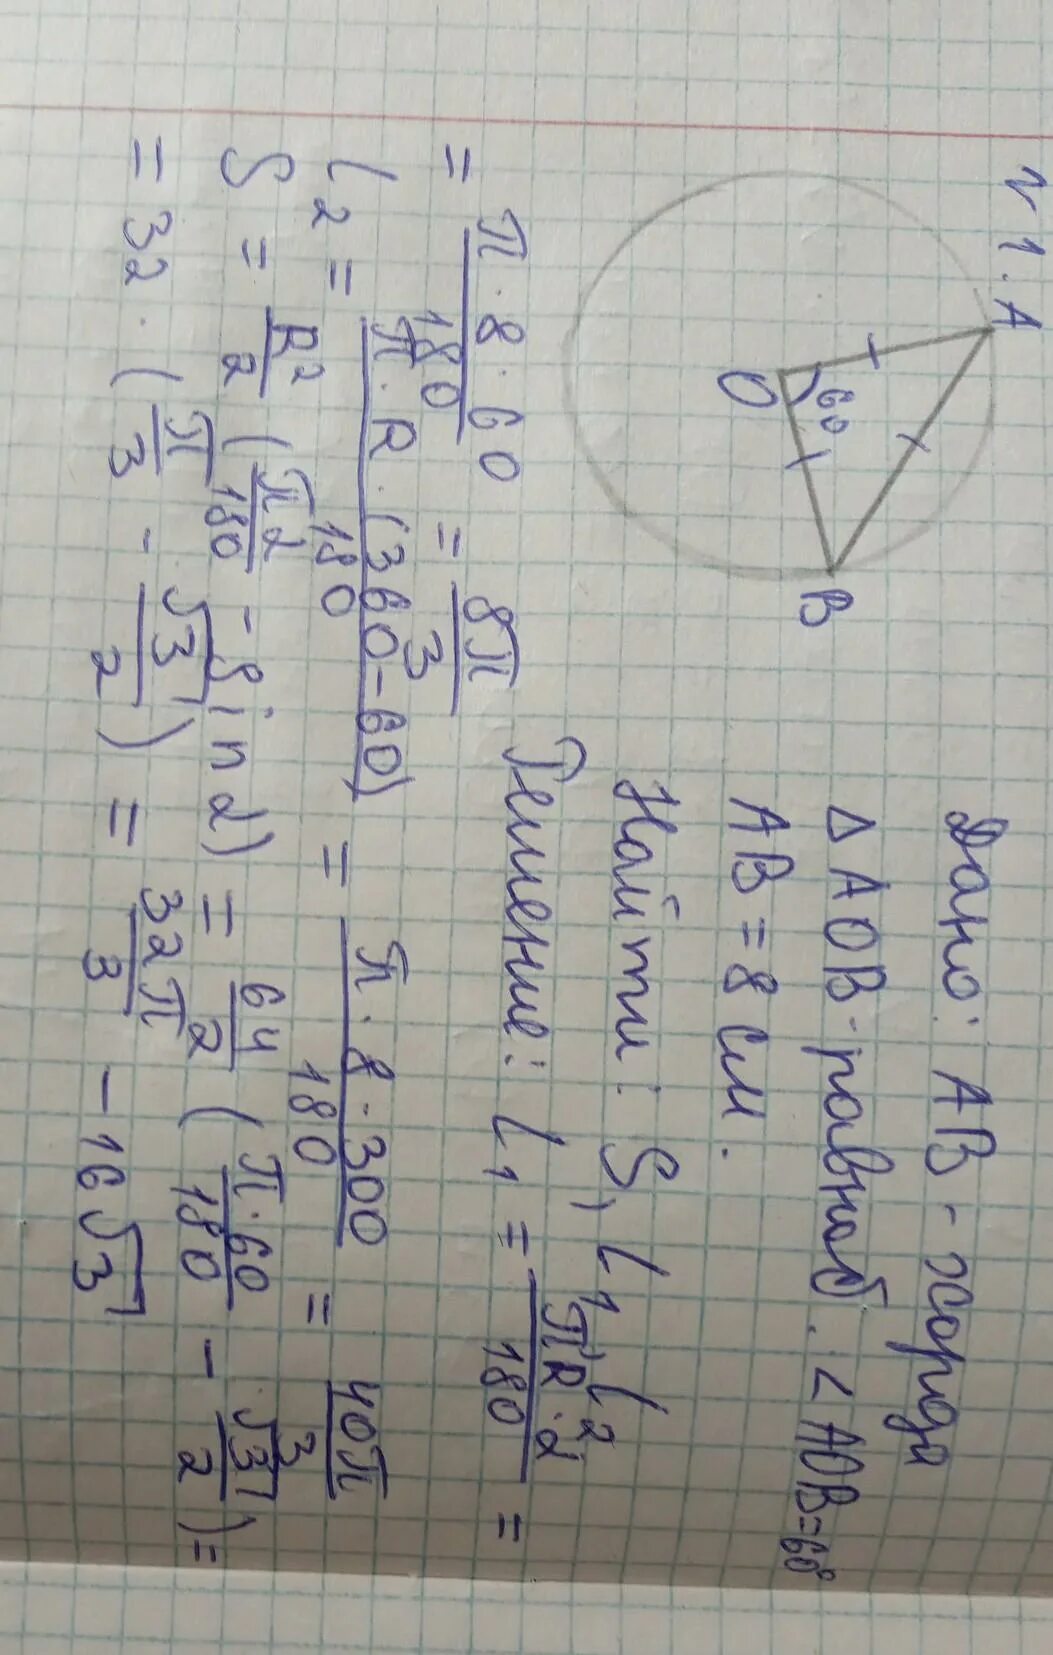 №1.
A
O
60
B
Дано: AB - хорда
△ AOB - равноб. < AOB=60°
AB = 8 см.
Найти: S, L1, L2
Решение: L1 = πR·α/180 =
= π·8·60/180 = 8π/3
L2 = π·R·(360-60)/180 = π·8·300/180 = 40π/3
S = R²/2 (πα/180 - sin α) = 64/2 (π·60/180 - √3/2) =
= 32·(π/3 - √3/2) = 32π/3 - 16√3